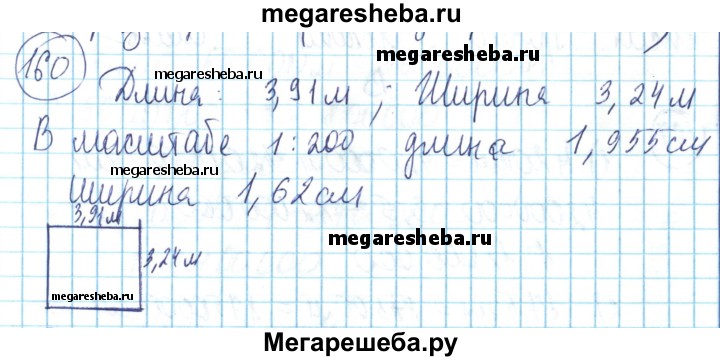 megaresheba.ru
160
megaresheba.ru
megaresheba.ru
Длина: 3,91 м; Ширина 3,24 м
В масштабе 1:200 длина 1,955 см
megaresheba.ru
Ширина 1,62 см
3,91 м
megaresheba.ru
3,24 м
megaresheba.ru
Мегарешеба.ру